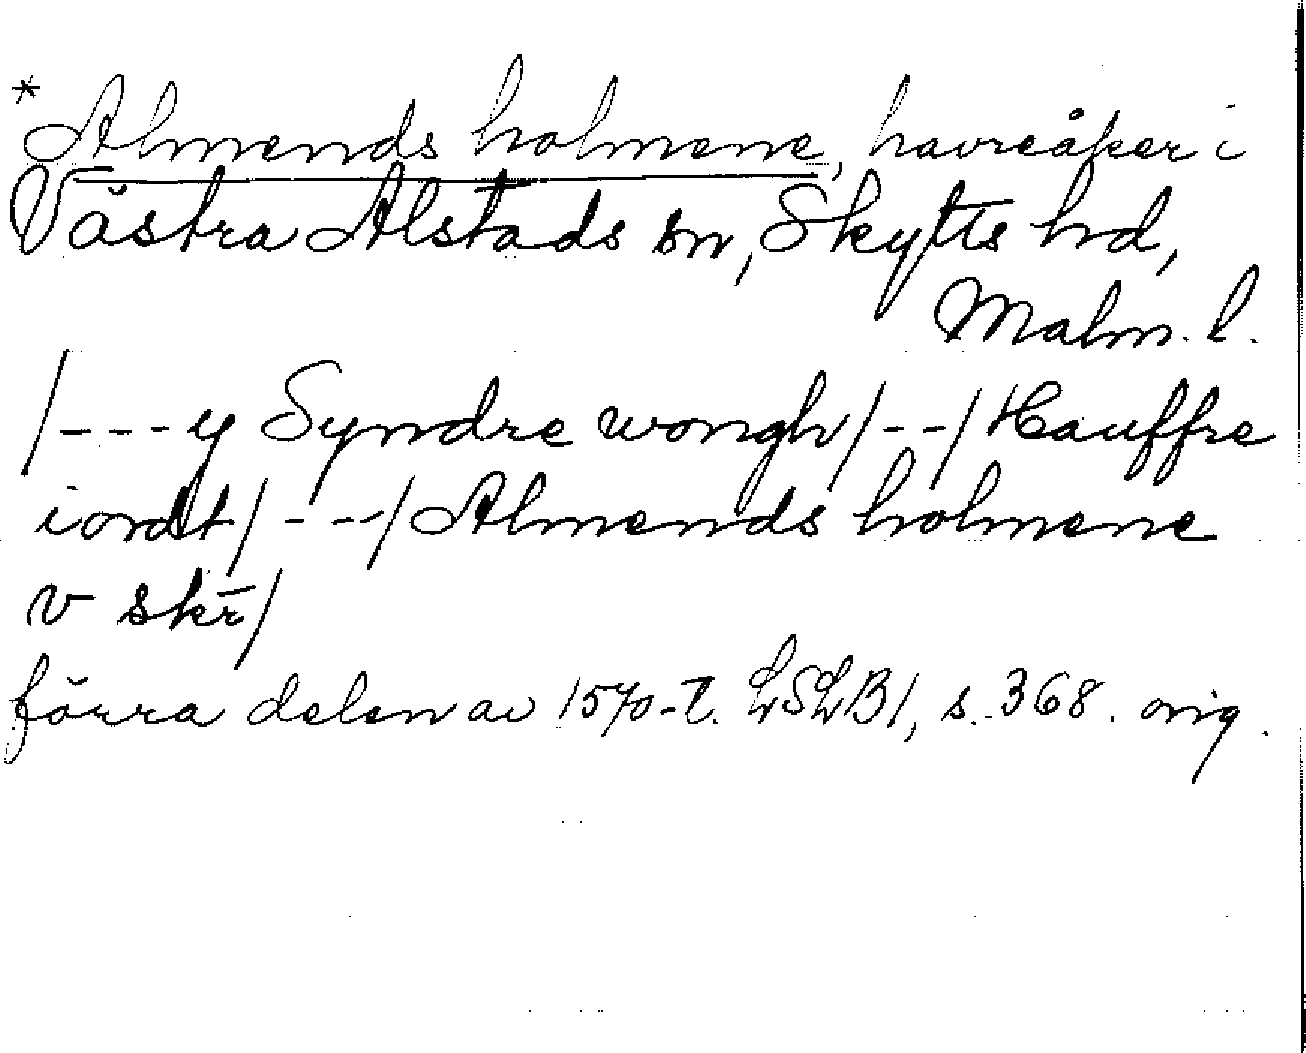 * Almends holmene, havreåker i
Västra Alstads sn, Skytts hd,
Malm. l.
/---y Syndre wongh/--/Hauffre
iordt/---/Almends holmene
v skr̄/
förra delen av 1570-t. LSLB1, s. 368. orig.